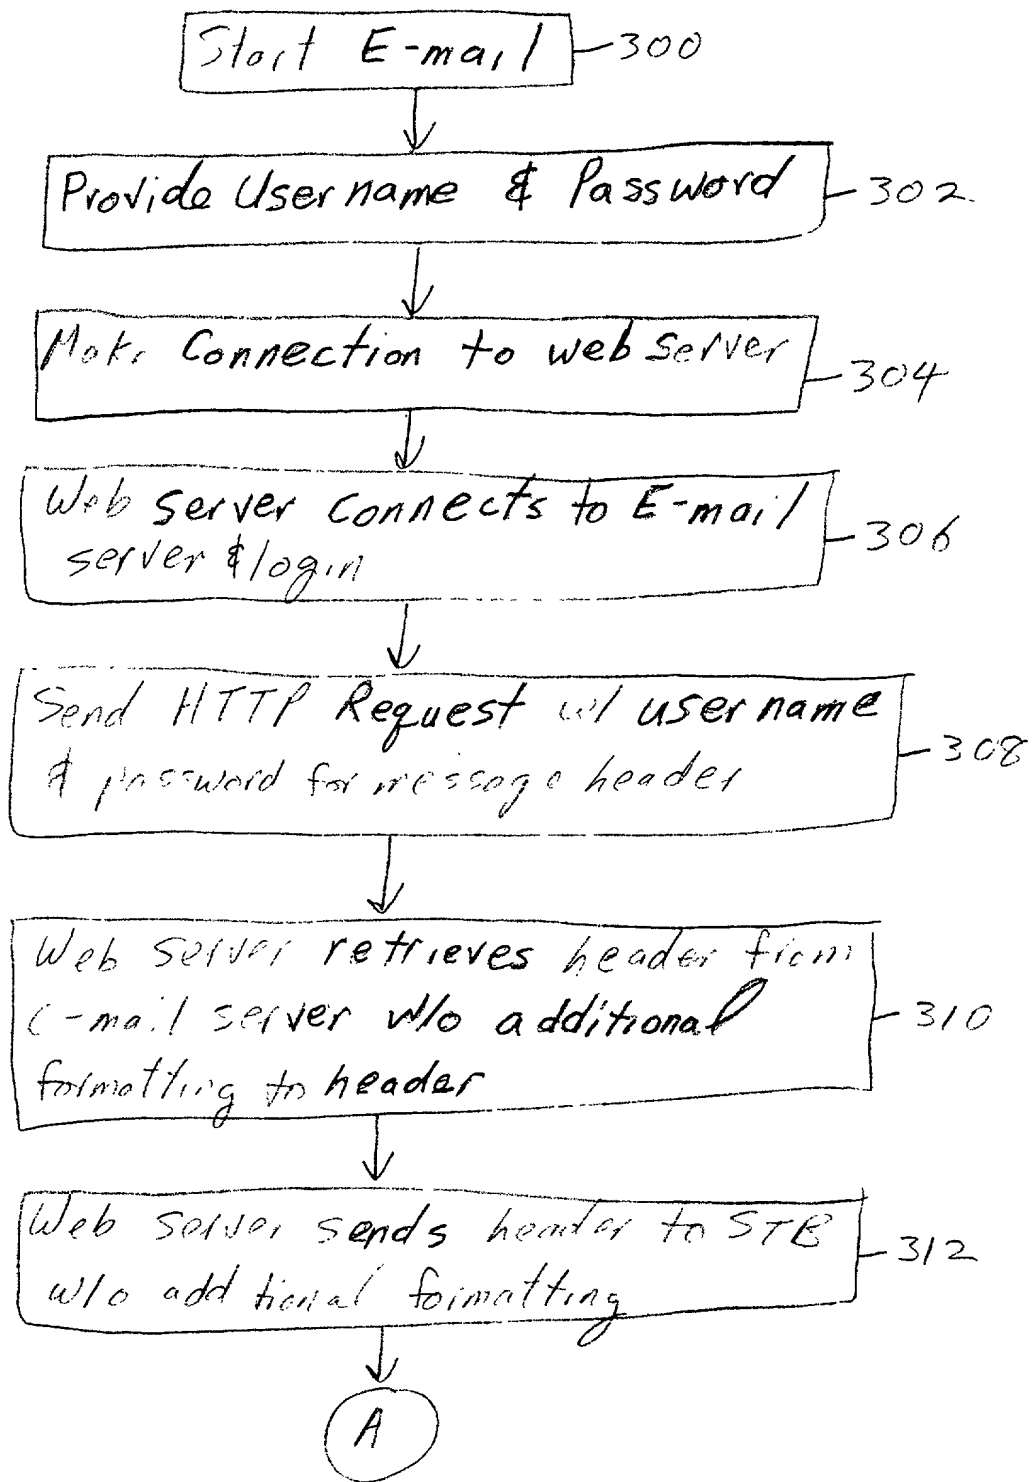 Start E-mail 300
Provide Username & Password 302
Make Connection to web server 304
Web server connects to E-mail 306
server & login
Send HTTP Request w/ username 308
& password for message header
Web server retrieves header from
e-mail server w/o additional 310
formatting to header
Web server sends header to STB 312
w/o additional formatting
A